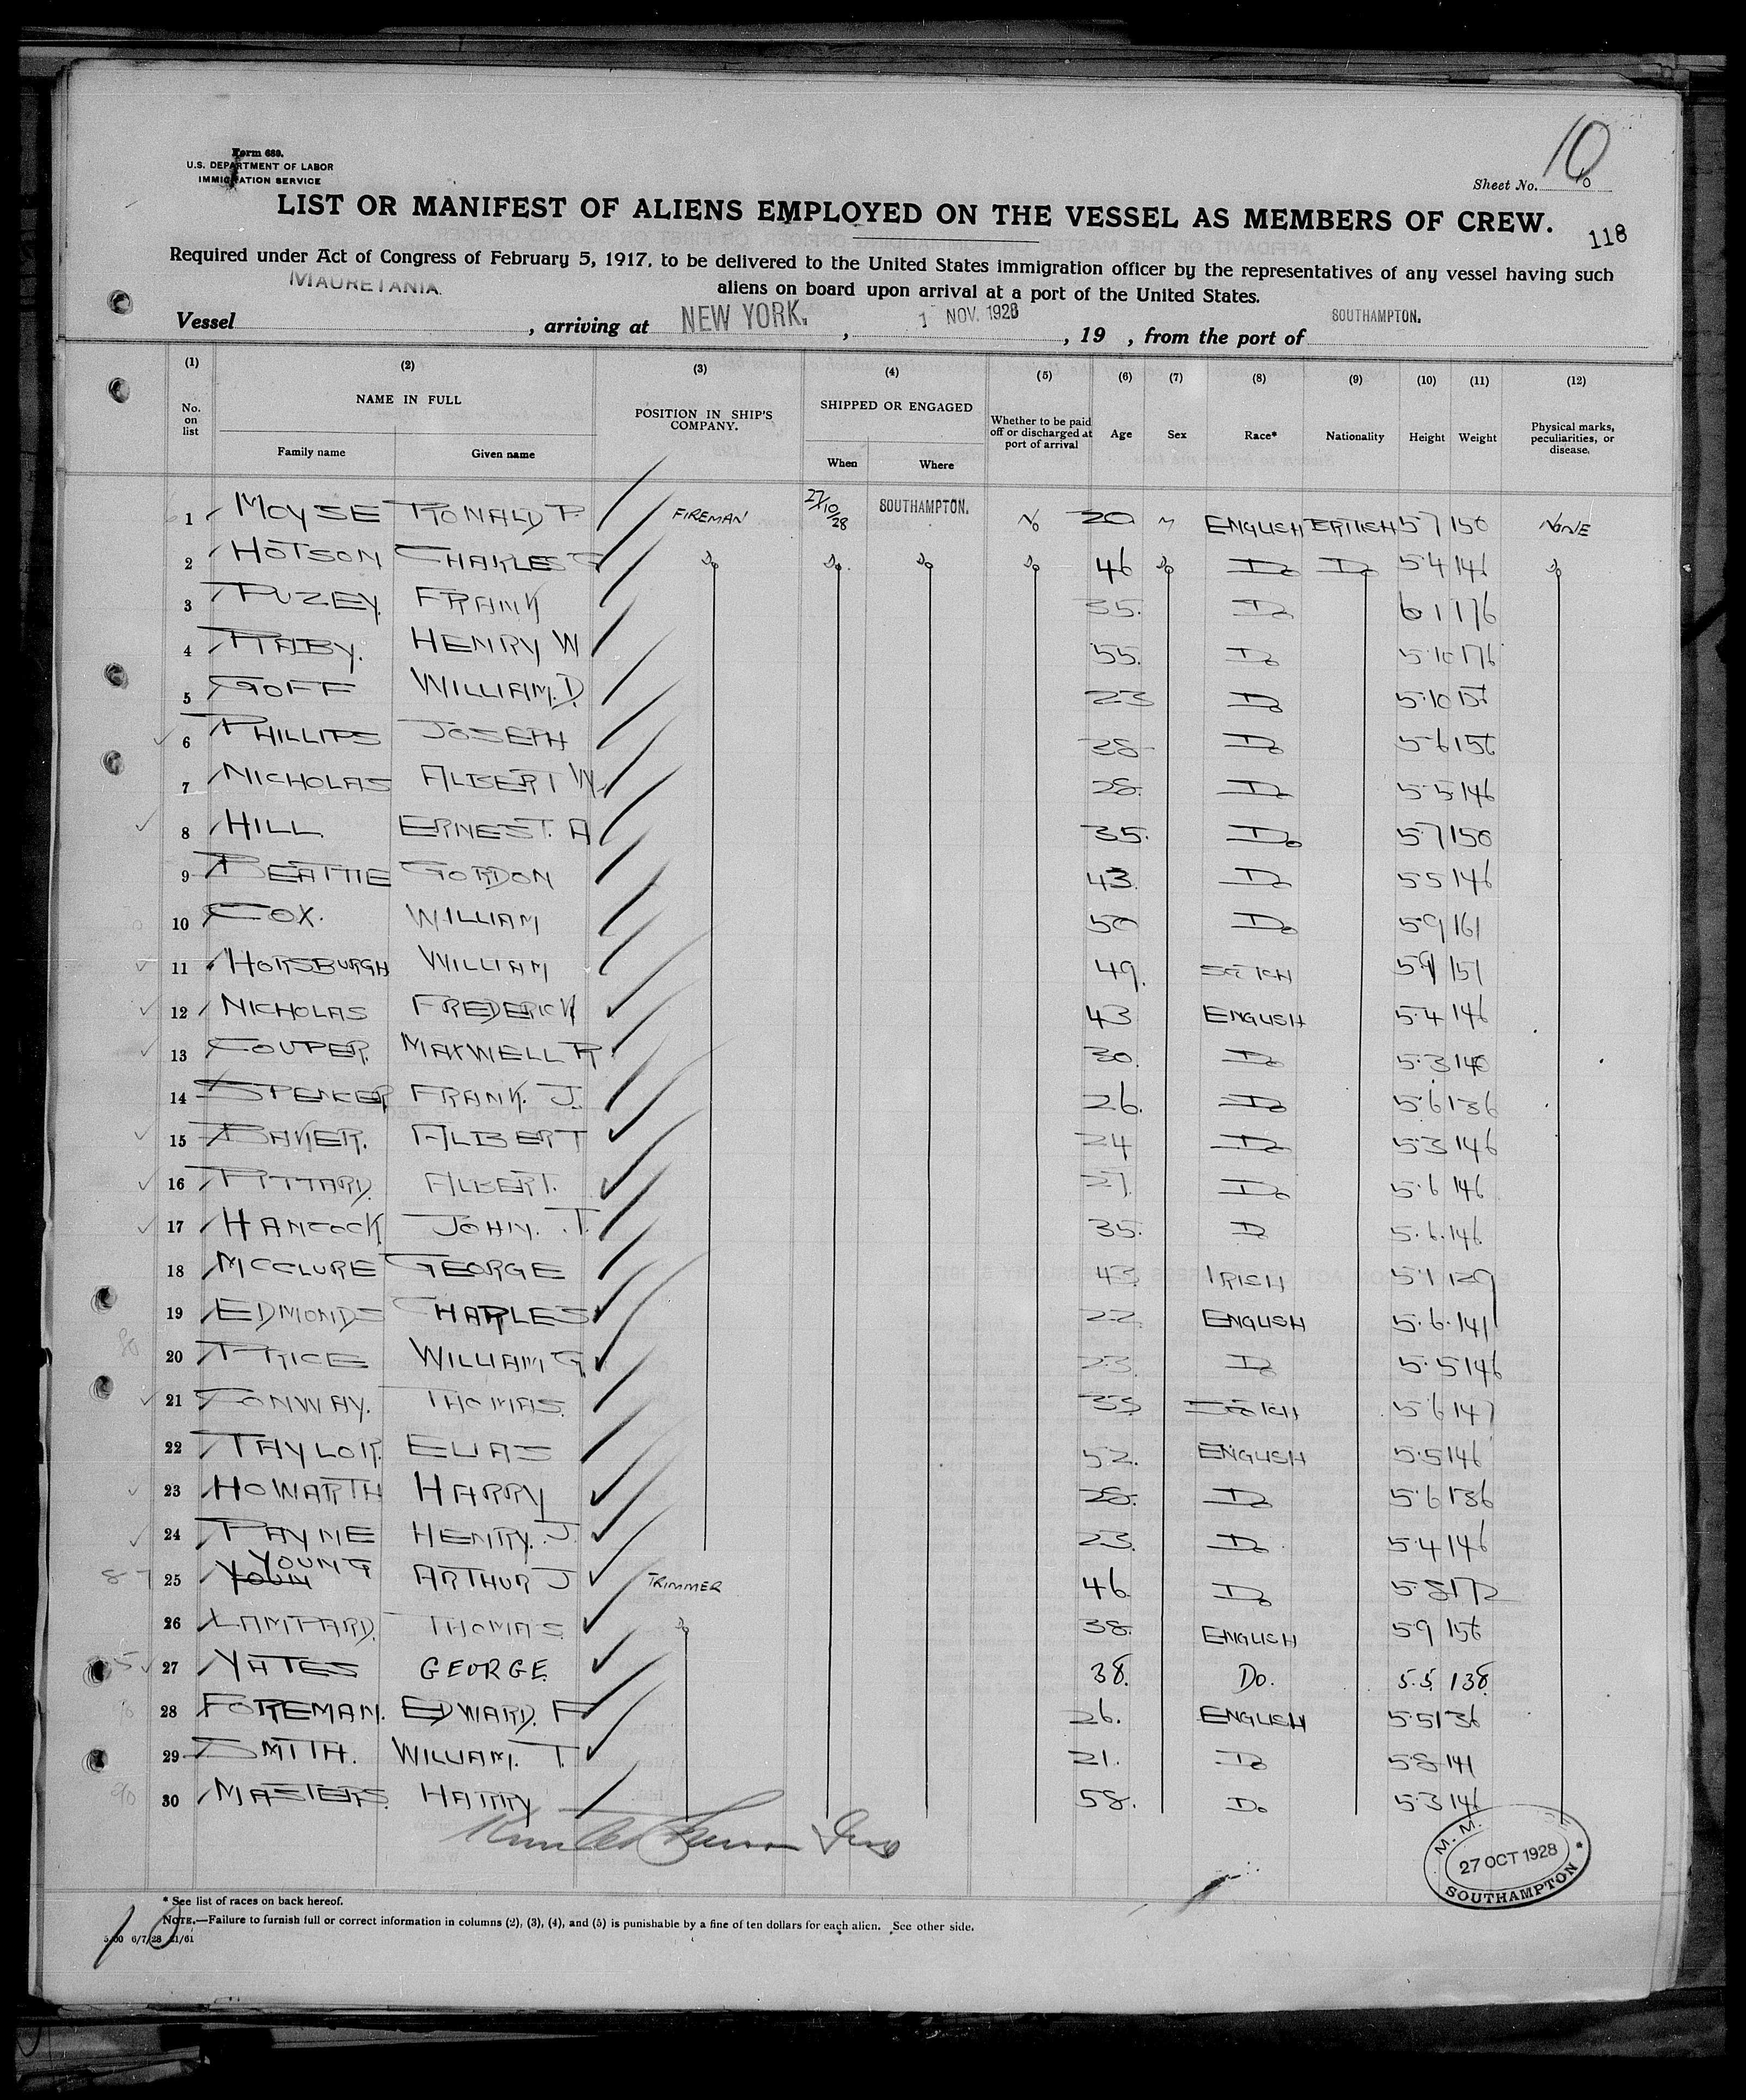 10
Form 680.
U.S. DEPARTMENT OF LABOR
IMMIGRATION SERVICE
Sheet No. 10
LIST OR MANIFEST OF ALIENS EMPLOYED ON THE VESSEL AS MEMBERS OF CREW.
118
Required under Act of Congress of February 5, 1917, to be delivered to the United States immigration officer by the representatives of any vessel having such
aliens on board upon arrival at a port of the United States.
Vessel MAURETANIA, arriving at NEW YORK, 1 NOV. 1928, 19 , from the port of SOUTHAMPTON.
(1) (2) (3) (4) (5) (6) (7) (8) (9) (10) (11) (12)
No. on list NAME IN FULL POSITION IN SHIP'S COMPANY. SHIPPED OR ENGAGED Whether to be paid off or discharged at port of arrival Age Sex Race* Nationality Height Weight Physical marks, peculiarities, or disease.
Family name Given name When Where
1 MOYSE RONALD P. FIREMAN 27/10/28 SOUTHAMPTON. No 20 M ENGLISH BRITISH 5 7 150 NONE
2 HOTSON CHARLES G Do Do. Do Do 46 Do Do Do 5 4 146 Do
3 PUZEY. FRANK 35. Do 6 1 176
4 RABY. HENRY W 55. Do 5.10 176
5 GOFF WILLIAM. D. 23 Do 5.10
6 PHILLIPS JOSEPH 28 Do 5 6 156
7 NICHOLAS ALBERT W. 28. Do 5.5 146
8 HILL ERNEST. A 35. Do 5.7 150
9 BEATTIE GORDON 43. Do 5 5 146
10 COX. WILLIAM 50 Do 5.9 161
11 HORSBURGH WILLIAM 49. SCOTCH 5.9 151
12 NICHOLAS FREDERICK 43 ENGLISH 5.4 146
13 COUPER. MAXWELL R 30. Do 5.3 140
14 SPENCER FRANK. J. 26. Do 5.6 136
15 BAKER. ALBERT 24 Do 5.3 146
16 PITTARD. ALBERT. 27. Do 5.6 146
17 HANCOCK JOHN. T. 35. Do 5.6. 146.
18 MCCLURE GEORGE 43. IRISH 5.1 129
19 EDMONDS CHARLES 22. ENGLISH 5.6. 141
20 PRICE WILLIAM G. 23. Do 5.5 146
21 CONWAY. THOMAS. 33. SCOTCH 5.6 147
22 TAYLOR. ELIAS 52. ENGLISH 5.5 146
23 HOWARTH HARRY 28. Do 5.6 136
24 PAYNE HENRY. J. 23. Do. 5.4 146
YOUNG
25 YOUN ARTHUR J TRIMMER 46 Do 5.8 172
26 LAMPARD. THOMAS. Do 38. ENGLISH 5 9 156
27 YATES GEORGE. 38. Do. 5.5. 138.
28 FOREMAN. EDWARD. F 26. ENGLISH 5.5 136
29 SMITH. WILLIAM. T. 21. Do 5.8 141
30 MASTERS. HARRY 58. Do 5.3 146
M. M.
27 OCT 1928
SOUTHAMPTON *
* See list of races on back hereof.
NOTE.—Failure to furnish full or correct information in columns (2), (3), (4), and (5) is punishable by a fine of ten dollars for each alien. See other side.
10
6/7/28 21/61